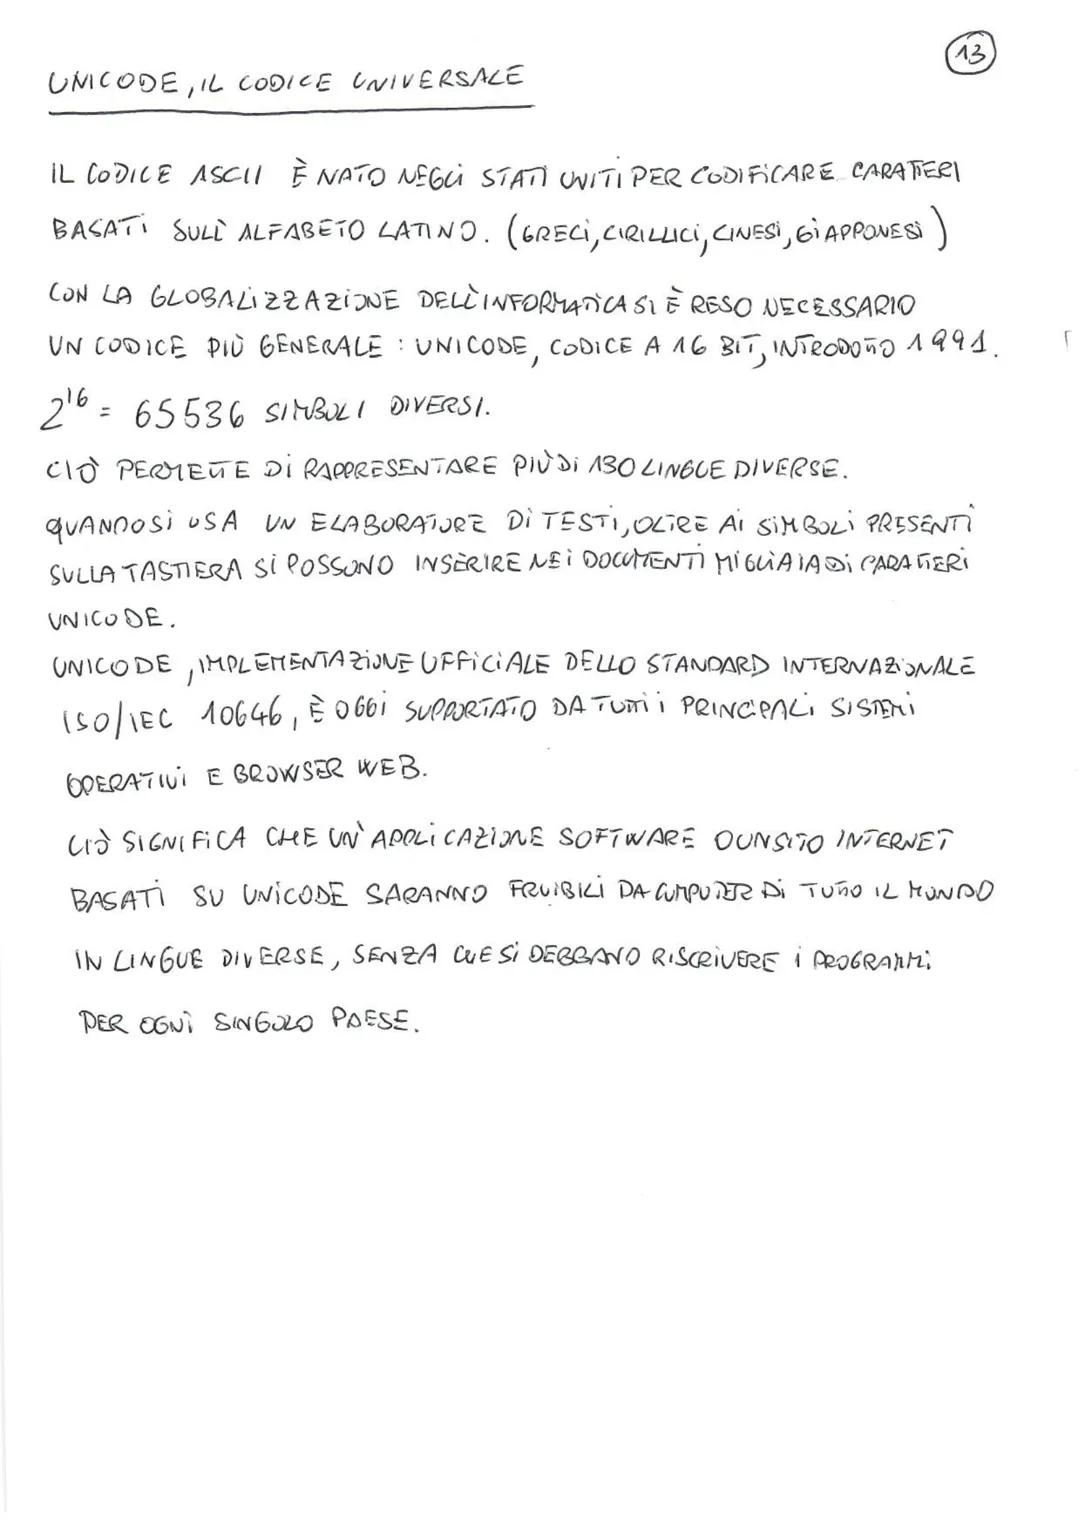 13
UNICODE, IL CODICE UNIVERSALE
IL CODICE ASCII È NATO NEGLI STATI UNITI PER CODIFICARE CARATTERI
BASATI SULL' ALFABETO LATINO. (GRECI, CIRILLICI, CINESI, GIAPPONESI)
CON LA GLOBALIZZAZIONE DELL'INFORMATICA SI È RESO NECESSARIO
UN CODICE PIÙ GENERALE : UNICODE, CODICE A 16 BIT, INTRODOTTO 1991.
2¹⁶ = 65536 SIMBOLI DIVERSI.
CIÒ PERMETTE DI RAPPRESENTARE PIÙ DI 130 LINGUE DIVERSE.
QUANDO SI USA UN ELABORATORE DI TESTI, OLTRE AI SIMBOLI PRESENTI
SULLA TASTIERA SI POSSONO INSERIRE NEI DOCUMENTI MIGLIAIA DI CARATTERI
UNICODE.
UNICODE, IMPLEMENTAZIONE UFFICIALE DELLO STANDARD INTERNAZIONALE
ISO/IEC 10646, È OGGI SUPPORTATO DA TUTTI I PRINCIPALI SISTEMI
OPERATIVI E BROWSER WEB.
CIÒ SIGNIFICA CHE UN'APPLICAZIONE SOFTWARE O UN SITO INTERNET
BASATI SU UNICODE SARANNO FRUIBILI DA COMPUTER DI TUTTO IL MONDO
IN LINGUE DIVERSE, SENZA CHE SI DEBBANO RISCRIVERE I PROGRAMMI
PER OGNI SINGOLO PAESE.